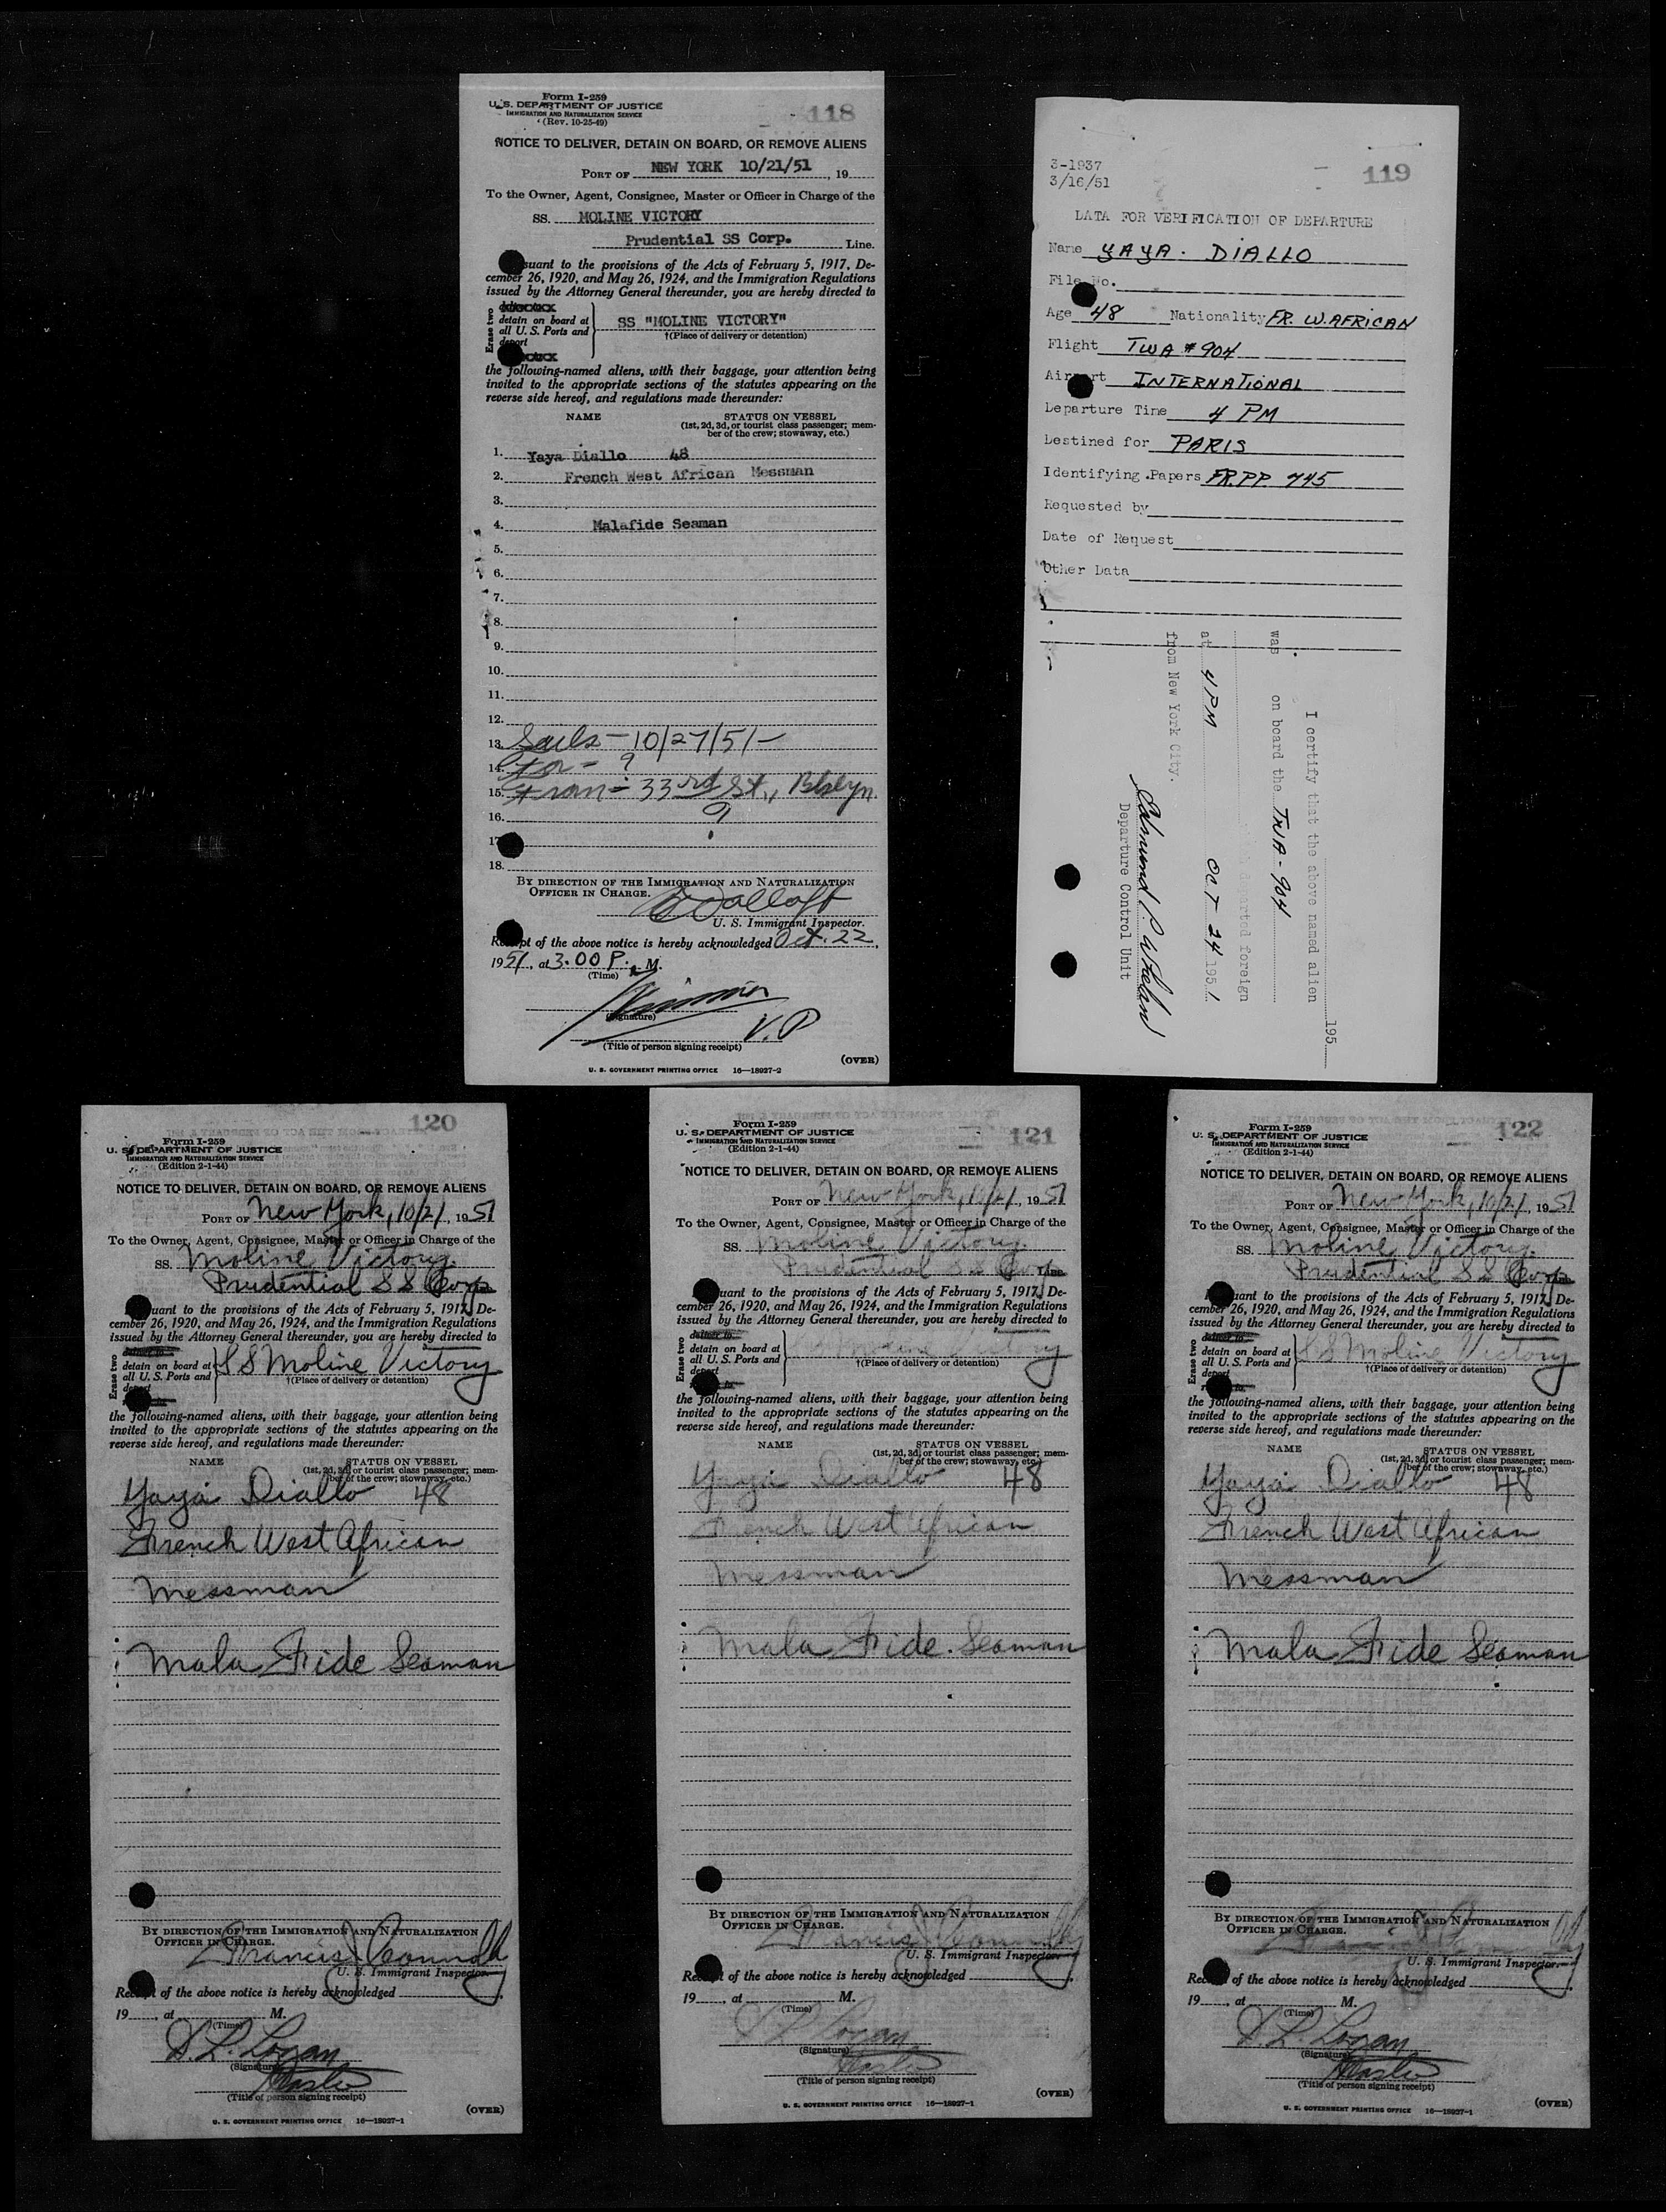 118
Form I-259
U. S. DEPARTMENT OF JUSTICE
IMMIGRATION AND NATURALIZATION SERVICE
(Rev. 10-25-49)
NOTICE TO DELIVER, DETAIN ON BOARD, OR REMOVE ALIENS
PORT OF NEW YORK 10/21/51, 19
To the Owner, Agent, Consignee, Master or Officer in Charge of the
SS. MOLINE VICTORY
Prudential SS Corp. Line.
suant to the provisions of the Acts of February 5, 1917, De-
cember 26, 1920, and May 26, 1924, and the Immigration Regulations
issued by the Attorney General thereunder, you are hereby directed to
Erase two
detain on board at
all U. S. Ports and
deport
SS "MOLINE VICTORY"
†(Place of delivery or detention)
the following-named aliens, with their baggage, your attention being
invited to the appropriate sections of the statutes appearing on the
reverse side hereof, and regulations made thereunder:
NAME STATUS ON VESSEL
(1st, 2d, 3d, or tourist class passenger; mem-
ber of the crew; stowaway, etc.)
1. Yaya Diallo 48
2. French West African Messman
3.
4. Malafide Seaman
5.
6.
7.
8.
9.
10.
11.
12.
13. Sails - 10/27/51 -
14. For - ?
15. From - 33rd St., Bklyn.
16. ?
17
18.
BY DIRECTION OF THE IMMIGRATION AND NATURALIZATION
OFFICER IN CHARGE.
U. S. Immigrant Inspector.
Receipt of the above notice is hereby acknowledged Oct. 22,
1951, at 3.00 P. M.
(Time)
(Signature)
V.P
(Title of person signing receipt)
(OVER)
U. S. GOVERNMENT PRINTING OFFICE 16—18927-2
119
3-1937
3/16/51
DATA FOR VERIFICATION OF DEPARTURE
Name YAYA. DIALLO
File No.
Age 48 Nationality FR. W. AFRICAN
Flight TWA # 904
Airport INTERNATIONAL
Departure Time 4 PM
Destined for PARIS
Identifying Papers FR. PP 745
Requested by
Date of Request
Other Data
195
I certify that the above named alien
was on board the TWA-904
departed foreign
at 4 PM OCT 24 1951
from New York City.
Edmund P. Whelan
Departure Control Unit
120
Form I-259
U. S. DEPARTMENT OF JUSTICE
IMMIGRATION AND NATURALIZATION SERVICE
(Edition 2-1-44)
NOTICE TO DELIVER, DETAIN ON BOARD, OR REMOVE ALIENS
PORT OF New York, 10/21, 1951
To the Owner, Agent, Consignee, Master or Officer in Charge of the
SS. Moline Victory.
Prudential S S Corp
uant to the provisions of the Acts of February 5, 1917, De-
cember 26, 1920, and May 26, 1924, and the Immigration Regulations
issued by the Attorney General thereunder, you are hereby directed to
Erase two
detain on board at
all U. S. Ports and
deport
S S Moline Victory
†(Place of delivery or detention)
the following-named aliens, with their baggage, your attention being
invited to the appropriate sections of the statutes appearing on the
reverse side hereof, and regulations made thereunder:
NAME STATUS ON VESSEL
(1st, 2d, 3d, or tourist class passenger; mem-
ber of the crew; stowaway, etc.)
Yaya Diallo 48
French West African
Messman
Mala Fide Seaman
BY DIRECTION OF THE IMMIGRATION AND NATURALIZATION
OFFICER IN CHARGE.
Francis J Connolly
U. S. Immigrant Inspector.
Receipt of the above notice is hereby acknowledged
19, at M.
(Time)
S. L. Logan
(Signature)
Master
(Title of person signing receipt)
(OVER)
U. S. GOVERNMENT PRINTING OFFICE 16—18927-1
121
Form I-259
U. S. DEPARTMENT OF JUSTICE
IMMIGRATION AND NATURALIZATION SERVICE
(Edition 2-1-44)
NOTICE TO DELIVER, DETAIN ON BOARD, OR REMOVE ALIENS
PORT OF New York, 10/21, 1951
To the Owner, Agent, Consignee, Master or Officer in Charge of the
SS. Moline Victory.
Prudential S S Corp Line
uant to the provisions of the Acts of February 5, 1917, De-
cember 26, 1920, and May 26, 1924, and the Immigration Regulations
issued by the Attorney General thereunder, you are hereby directed to
Erase two
deliver to
detain on board at
all U. S. Ports and
deport
Moline Victory
†(Place of delivery or detention)
the following-named aliens, with their baggage, your attention being
invited to the appropriate sections of the statutes appearing on the
reverse side hereof, and regulations made thereunder:
NAME STATUS ON VESSEL
(1st, 2d, 3d, or tourist class passenger; mem-
ber of the crew; stowaway, etc.)
Yaya Diallo 48
French West African
Messman
Mala Fide. Seaman
BY DIRECTION OF THE IMMIGRATION AND NATURALIZATION
OFFICER IN CHARGE.
Francis J Connolly
U. S. Immigrant Inspector.
Receipt of the above notice is hereby acknowledged
19, at M.
(Time)
S. L. Logan
(Signature)
Master
(Title of person signing receipt)
(OVER)
U. S. GOVERNMENT PRINTING OFFICE 16—18927-1
122
Form I-259
U. S. DEPARTMENT OF JUSTICE
IMMIGRATION AND NATURALIZATION SERVICE
(Edition 2-1-44)
NOTICE TO DELIVER, DETAIN ON BOARD, OR REMOVE ALIENS
PORT OF New York, 10/21, 1951
To the Owner, Agent, Consignee, Master or Officer in Charge of the
SS. Moline Victory.
Prudential S S Corp
uant to the provisions of the Acts of February 5, 1917, De-
cember 26, 1920, and May 26, 1924, and the Immigration Regulations
issued by the Attorney General thereunder, you are hereby directed to
Erase two
deliver to
detain on board at
all U. S. Ports and
deport
S S Moline Victory
†(Place of delivery or detention)
the following-named aliens, with their baggage, your attention being
invited to the appropriate sections of the statutes appearing on the
reverse side hereof, and regulations made thereunder:
NAME STATUS ON VESSEL
(1st, 2d, 3d, or tourist class passenger; mem-
ber of the crew; stowaway, etc.)
Yaya Diallo 48
French West African
Messman
Mala Fide Seaman
BY DIRECTION OF THE IMMIGRATION AND NATURALIZATION
OFFICER IN CHARGE.
U. S. Immigrant Inspector.
Receipt of the above notice is hereby acknowledged
19, at M.
(Time)
S. L. Logan
(Signature)
Master
(Title of person signing receipt)
(OVER)
U. S. GOVERNMENT PRINTING OFFICE 16—18927-1